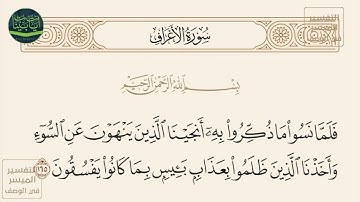 سُورَةُ الأَعْرَافِ
بِسْمِ اللَّهِ الرَّحْمَٰنِ الرَّحِيمِ
فَلَمَّا نَسُوا۟ مَا ذُكِّرُوا۟ بِهِۦٓ أَنجَيْنَا ٱلَّذِينَ يَنْهَوْنَ عَنِ ٱلسُّوٓءِ
وَأَخَذْنَا ٱلَّذِينَ ظَلَمُوا۟ بِعَذَابٍۭ بَـِٔيسٍۭ بِمَا كَانُوا۟ يَفْسُقُونَ ١٦٥
التفسير
الميسر
في الوصف